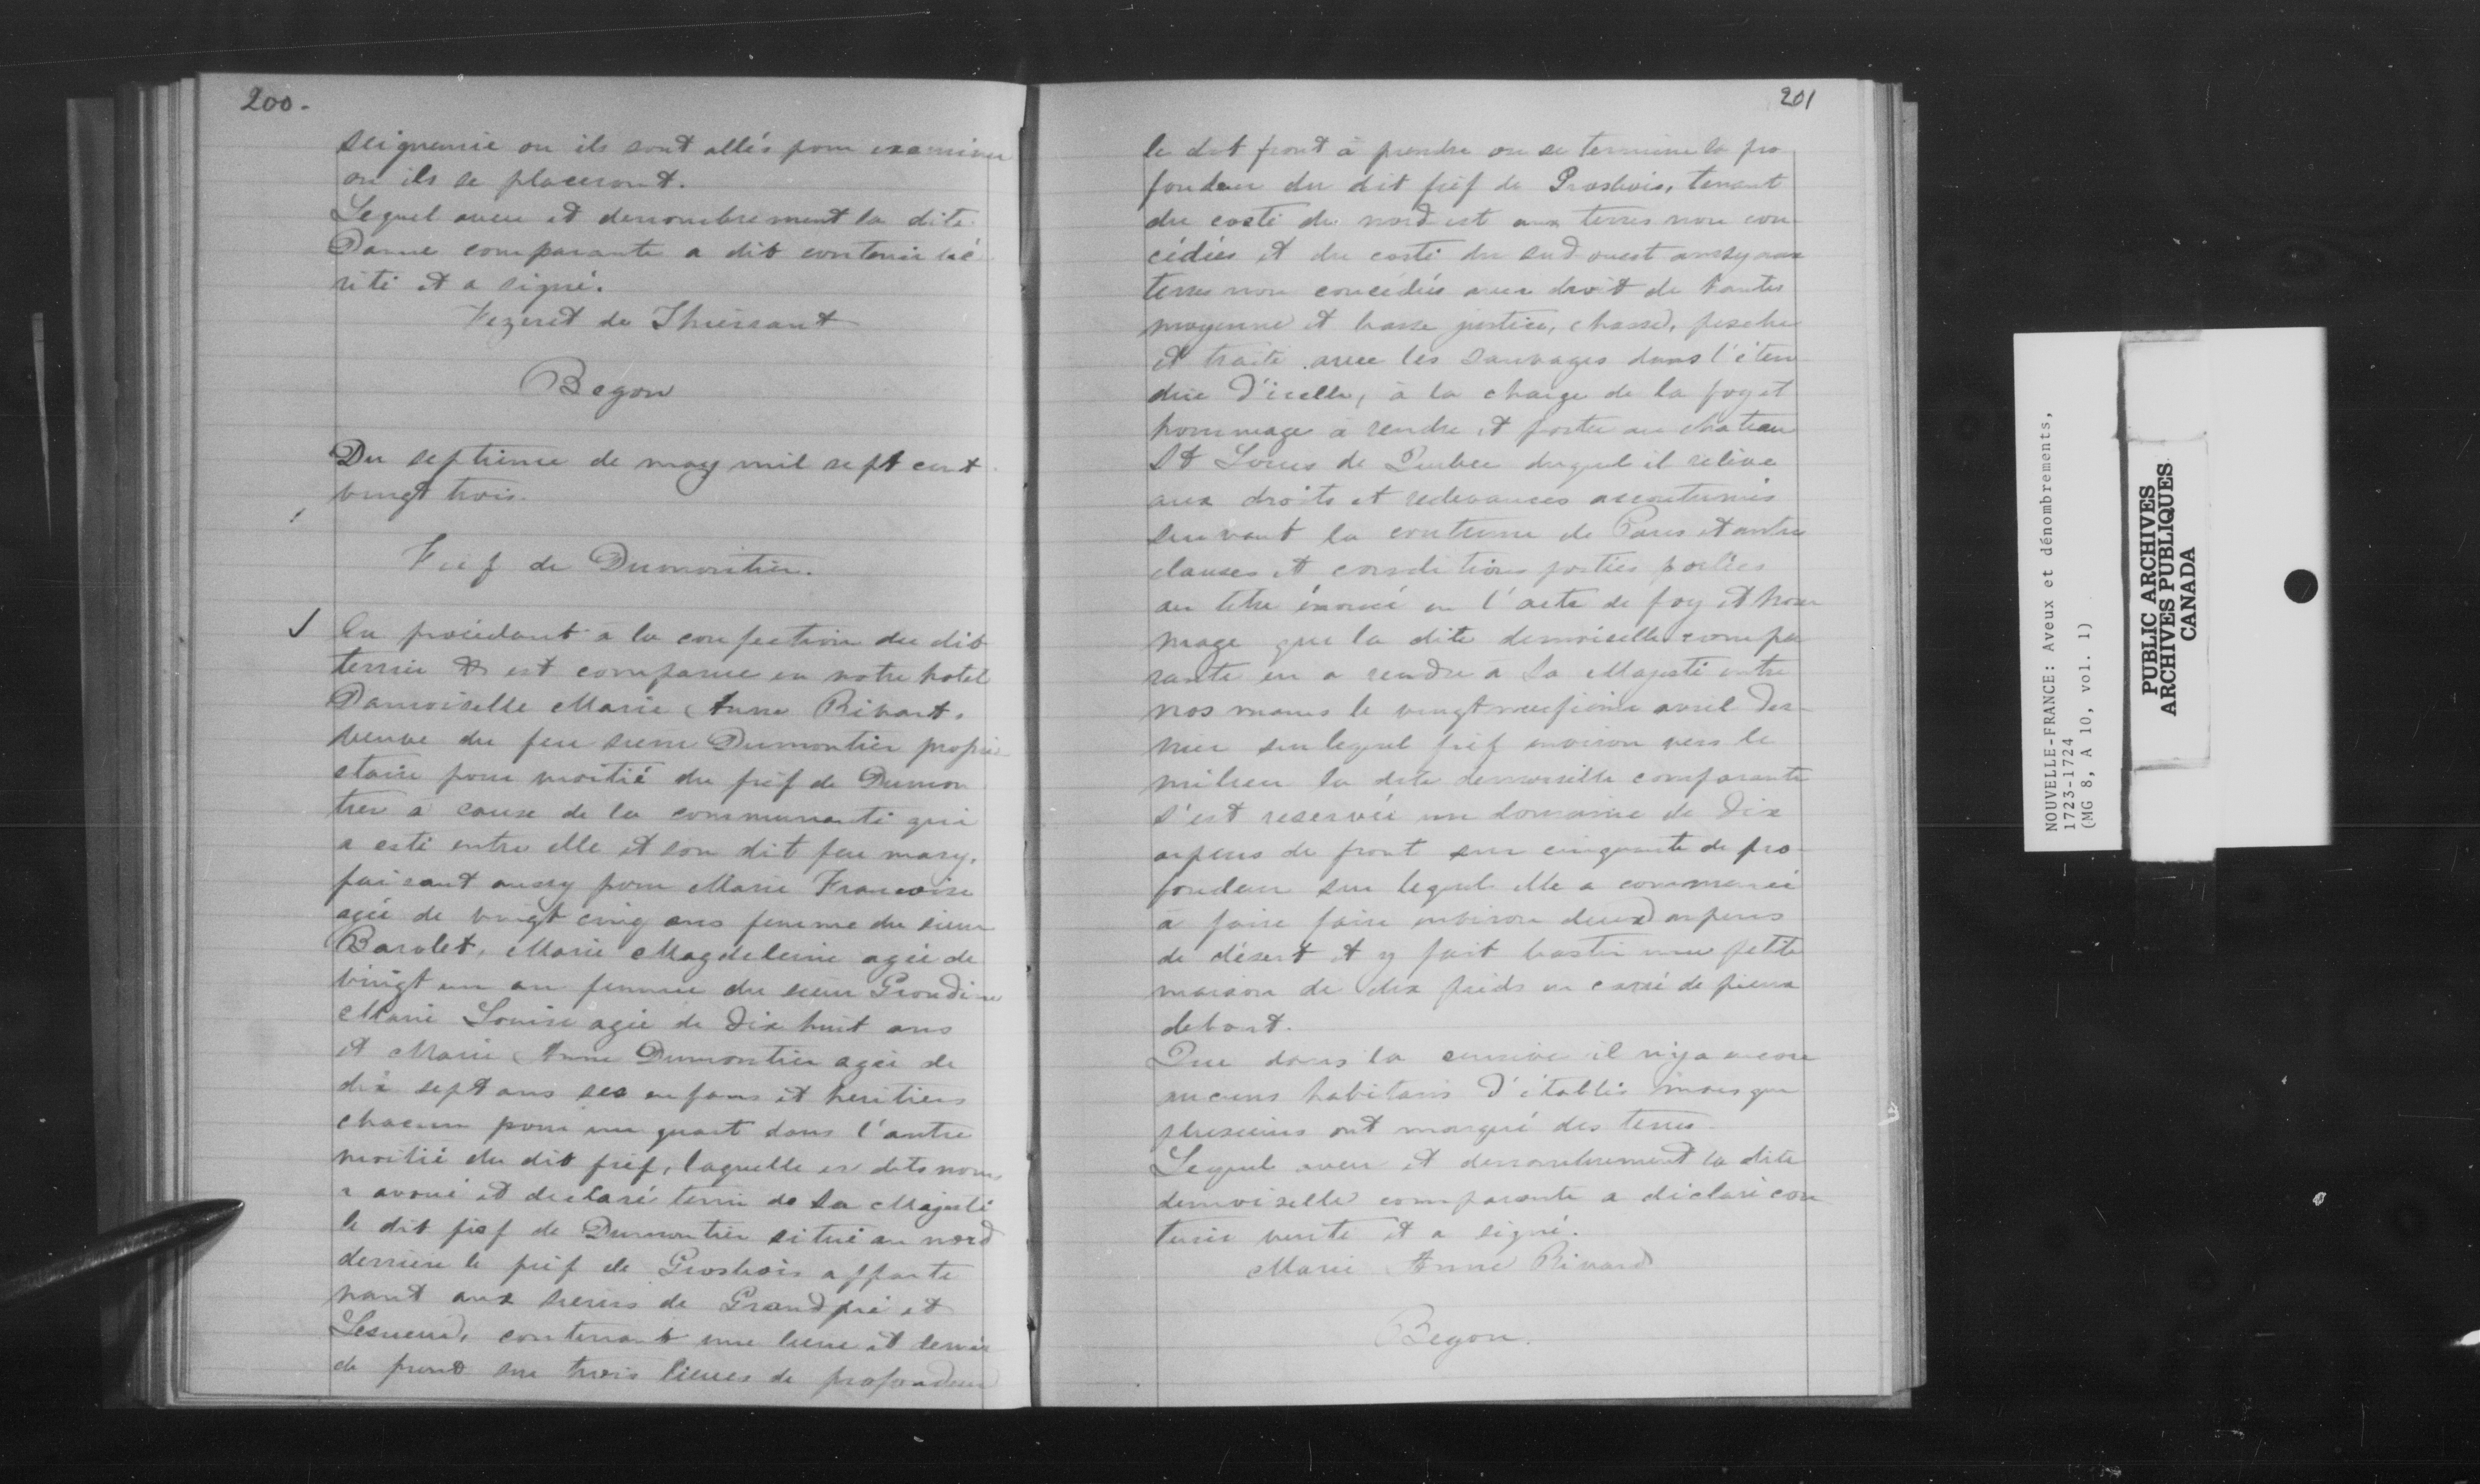 200.
seigneurie ou ils sont allés pour examiner
ou ils se placeront.
Lequel aveu et denombrement la dite
Dame comparante a dit contenir vé
rité et a signé.
Vezeret de Thiersant
Begon
Du septieme de may mil sept cent
vingt trois.
Fief de Dumontier.
En procédant à la confection du dit
terrier est comparue en notre hotel
Damoiselle Marie Anne Rivart,
veuve du feu sieur Dumontier proprie
etaire pour moitié du fief de Dumon
tier a cause de la communauté qui
a esté entre elle et son dit feu mary,
faisant aussy pour Marie Francoise
agée de vingt cinq ans femme du sieur
Barolet, Marie Magdeleine agée de
vingt un an femme du sieur Grondine
Marie Louise agée de dix huit ans
et Marie Anne Dumontier agée de
dix sept ans ses enfans et heritiers
chacun pour un quart dans l'autre
moitié du dit fief, laquelle es dits noms
a avoué et déclaré tenir de Sa Majesté
le dit fief de Dumontier situé au nord
derriere le fief de Grosbois apparte
nant aux sieurs de Grandpré et
Lesueur, contenant une lieue et demie
de front sur trois lieues de profondeur
201
le dit front à prendre ou se termine la pro
fondeur du dit fief de Grosbois, tenant
du costé du nord est aux terres non con
cédées et du costé du sud ouest aussy aux
terres non concédées avec droit de hautes
moyenne et basse justice, chasse, pesche
et traite avec les sauvages dans l'éten
due d'icelle, à la charge de la foy et
hommage a rendre et porter au chateau
St Louis de Quebec duquel il releve
aux droits et redevances accoutumés
suivant la coutume de Paris et autres
clauses et conditions portées portées
au titre énoncé en l'acte de foy et hom
mage que la dite demoiselle compa
rante en a rendu a Sa Majesté entre
nos mains le vingt neufieme avril der-
nier sur lequel fief environ vers le
milieu la dite demoiselle comparante
s'est reservée un domaine de dix
arpens de front sur cinquante de pro-
fondeur sur lequel elle a commencé
à faire faire environ deux arpens
de désert et y fait bastir une petite
maison de dix pieds en carré de pieux
debout.
Que dans la censive il n'y a encore
aucuns habitans d'établis mais que
plusieurs ont marqué des terres.
Lequel aveu et denombrement la dite
demoiselle comparante a déclaré con
tenir verité et a signé.
Marie Anne Rivard
Begon.
NOUVELLE-FRANCE: Aveux et dénombrements,
1723-1724
(MG 8, A 10, vol. 1)
PUBLIC ARCHIVES
ARCHIVES PUBLIQUES
CANADA